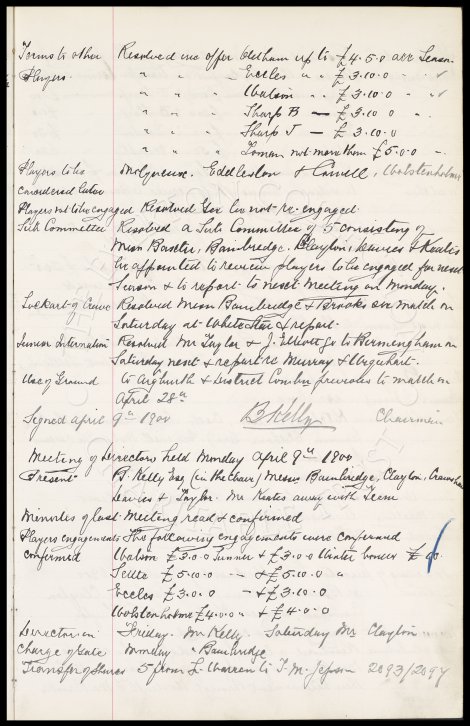 Terms to other Resolved we offer Oldham up to £4.5.0 all Season
Players. " " " Eccles " " £3.10.0 " ✓
" " " Watson " " £3.10.0 " ✓
" " " Sharp B — £3.10.0 "
" " " Sharp J — £3.10.0
" " " not more than £5.0.0 "
Players to be Eddleston & Cowell, Wolstenholme
considered later
Players not to be engaged Resolved be not re-engaged.
Sub Committee Resolved a Sub Committee of 5 consisting of
Messrs Baxter, Bainbridge, Clayton, Davies & Keates
be appointed to review players to be engaged for next
Season & to report to next Meeting on Monday.
Lockart of Crewe Resolved Messrs Bainbridge & Brooks see match on
Saturday at & report.
Junior Internation Resolved Mr Taylor & J. Elliott go to Birmingham on
Saturday next & report re Murray & Urquhart.
Use of Ground to Aigburth & District Combn previous to match on
April 28th
Signed April 9th 1900 B Kelly Chairman
Meeting of Directors held Monday April 9th 1900
Present B. Kelly Esq (in the Chair) Messrs Bainbridge, Clayton, Crawshaw
Davies & Taylor. Mr Keates away with Team
Minutes of last Meeting read & confirmed
Players engagements The following engagements were confirmed
confirmed Watson £3.0.0 Summer & £3.0.0 Winter bonus £10
Settle £5.10.0 — & £5.10.0 "
Eccles £3.0.0 — & £3.10.0
Wolstenholme £4.0.0 " & £4.0.0
Director in Friday. Mr Kelly. Saturday Mr Clayton
Charge of Gate Monday " Bainbridge
Transfer of Shares 5 from L. Warren to T. M. Jepson 2093/2097